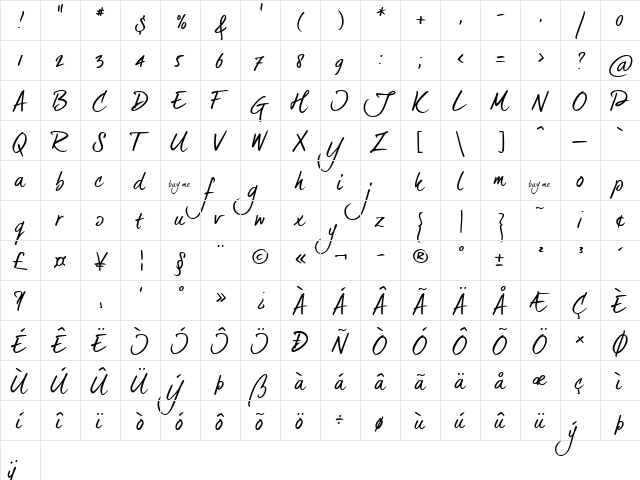 ! " # $ % & ' ( ) * + , - . / 0
1 2 3 4 5 6 7 8 9 : ; < = > ? @
A B C D E F G H I J K L M N O P
Q R S T U V W X Y Z [ \ ] ^ _ `
a b c d buy me f g h i j k l m buy me o p
q r s t u v w x y z { | } ~ ¡ ¢
£ ¤ ¥ ¦ § ¨ © « ¬ - ® ° ± ² ³ ´
¶ ¸ ¹ º » ¿ À Á Â Ã Ä Å Æ Ç È
É Ê Ë Ì Í Î Ï Ð Ñ Ò Ó Ô Õ Ö × Ø
Ù Ú Û Ü Ý Þ ß à á â ã ä å æ ç ì
í î ï ò ó ô õ ö ÷ ø ù ú û ü ý þ
ÿ